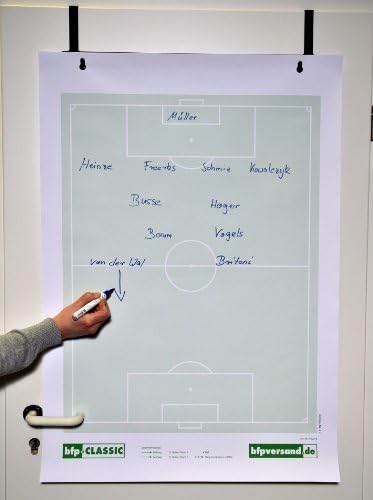 Müller
Heinze Freerbs Schmie Kowalczyk
Busse Hager
Baum Vogels
van der Wal Britani
bfp CLASSIC
bfpversand.de